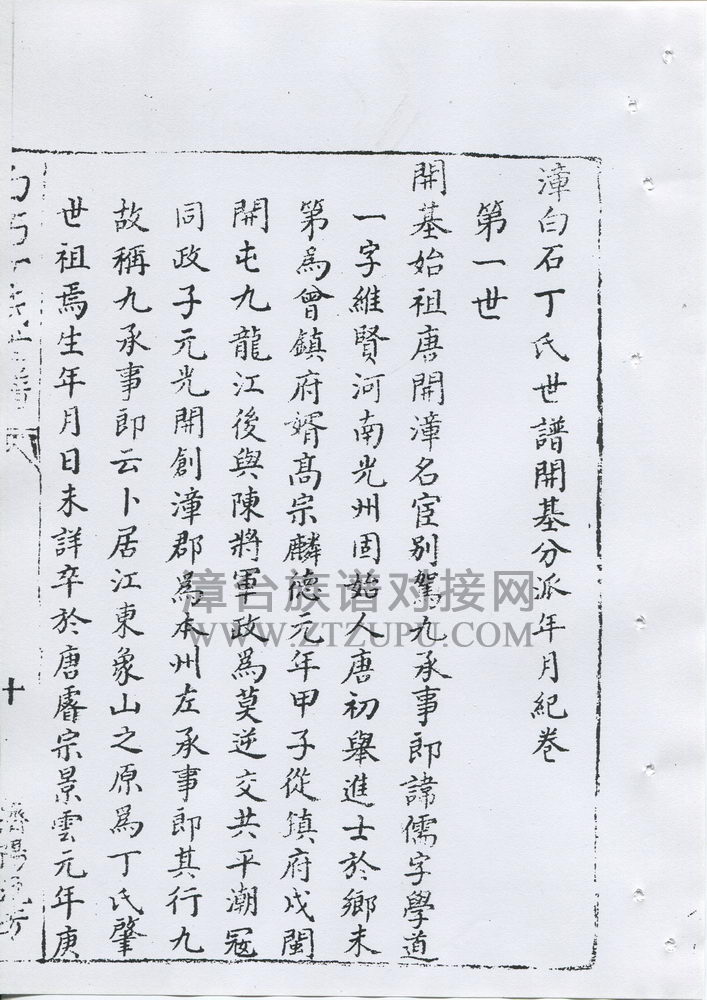 漳白石丁氏世譜開基分派年月紀卷
第一世
開基始祖唐開漳名宦別駕九承事郎諱儒字學道
一字維賢河南光州固始人唐初舉進士於鄉未
第為曾鎮府婿高宗麟德元年甲子從鎮府戍閩
開屯九龍江後與陳將軍政為莫逆交共平潮冦
同政子元光開創漳郡為本州左承事郎其行九
故稱九承事郎云卜居江東象山之原為丁氏肇
世祖焉生年月日未詳卒於唐睿宗景雲元年庚
十
漳台族谱对接网
WWW.ZTZUPU.COM